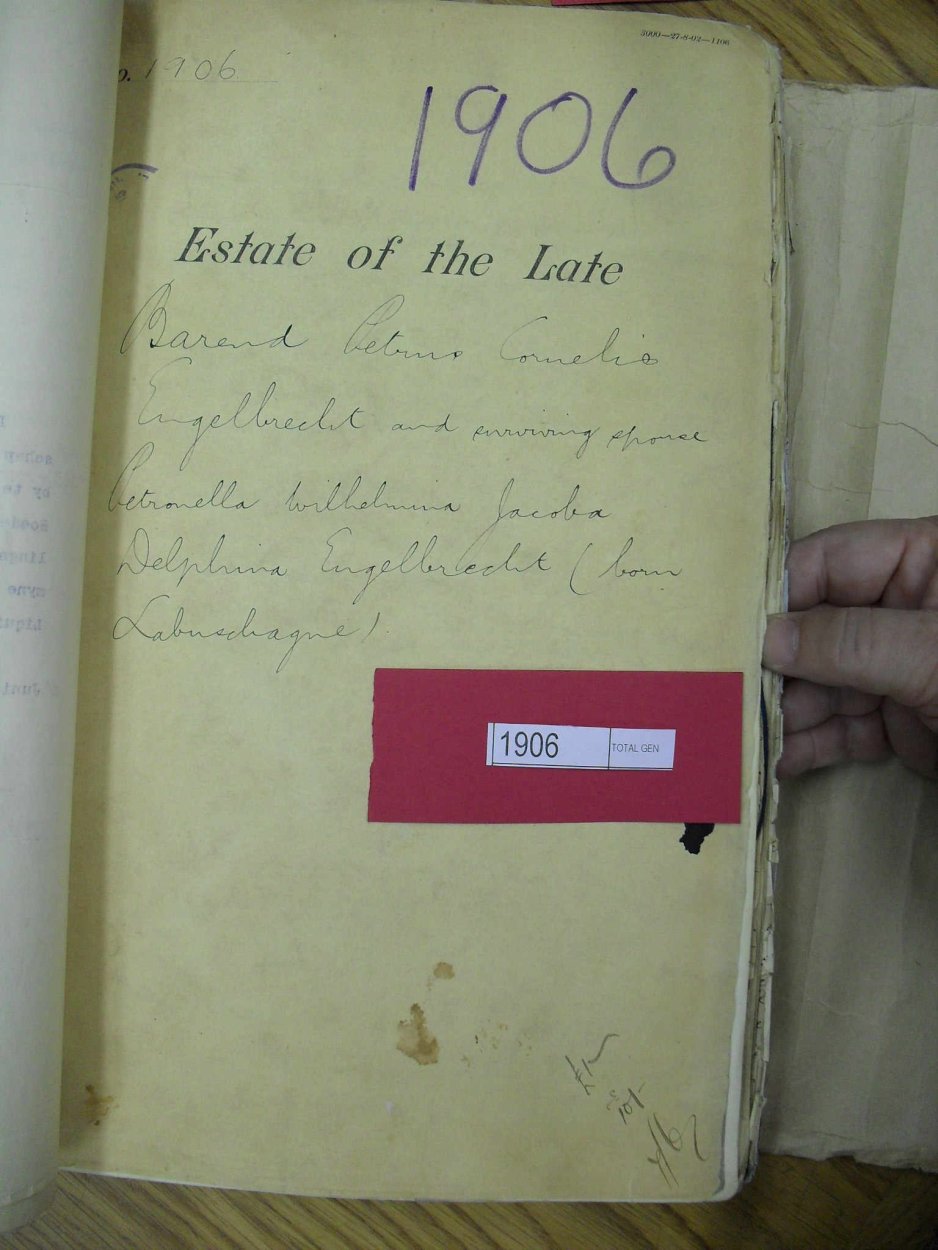 3000—27-8-02—1106
o. 1906
1906
Estate of the Late
Barend Petrus Cornelis
Engelbrecht and surviving spouse
Petronella Wilhelmina Jacoba
Delphina Engelbrecht (born
Labuschagne)
1906 TOTAL GEN
£1/
10/-